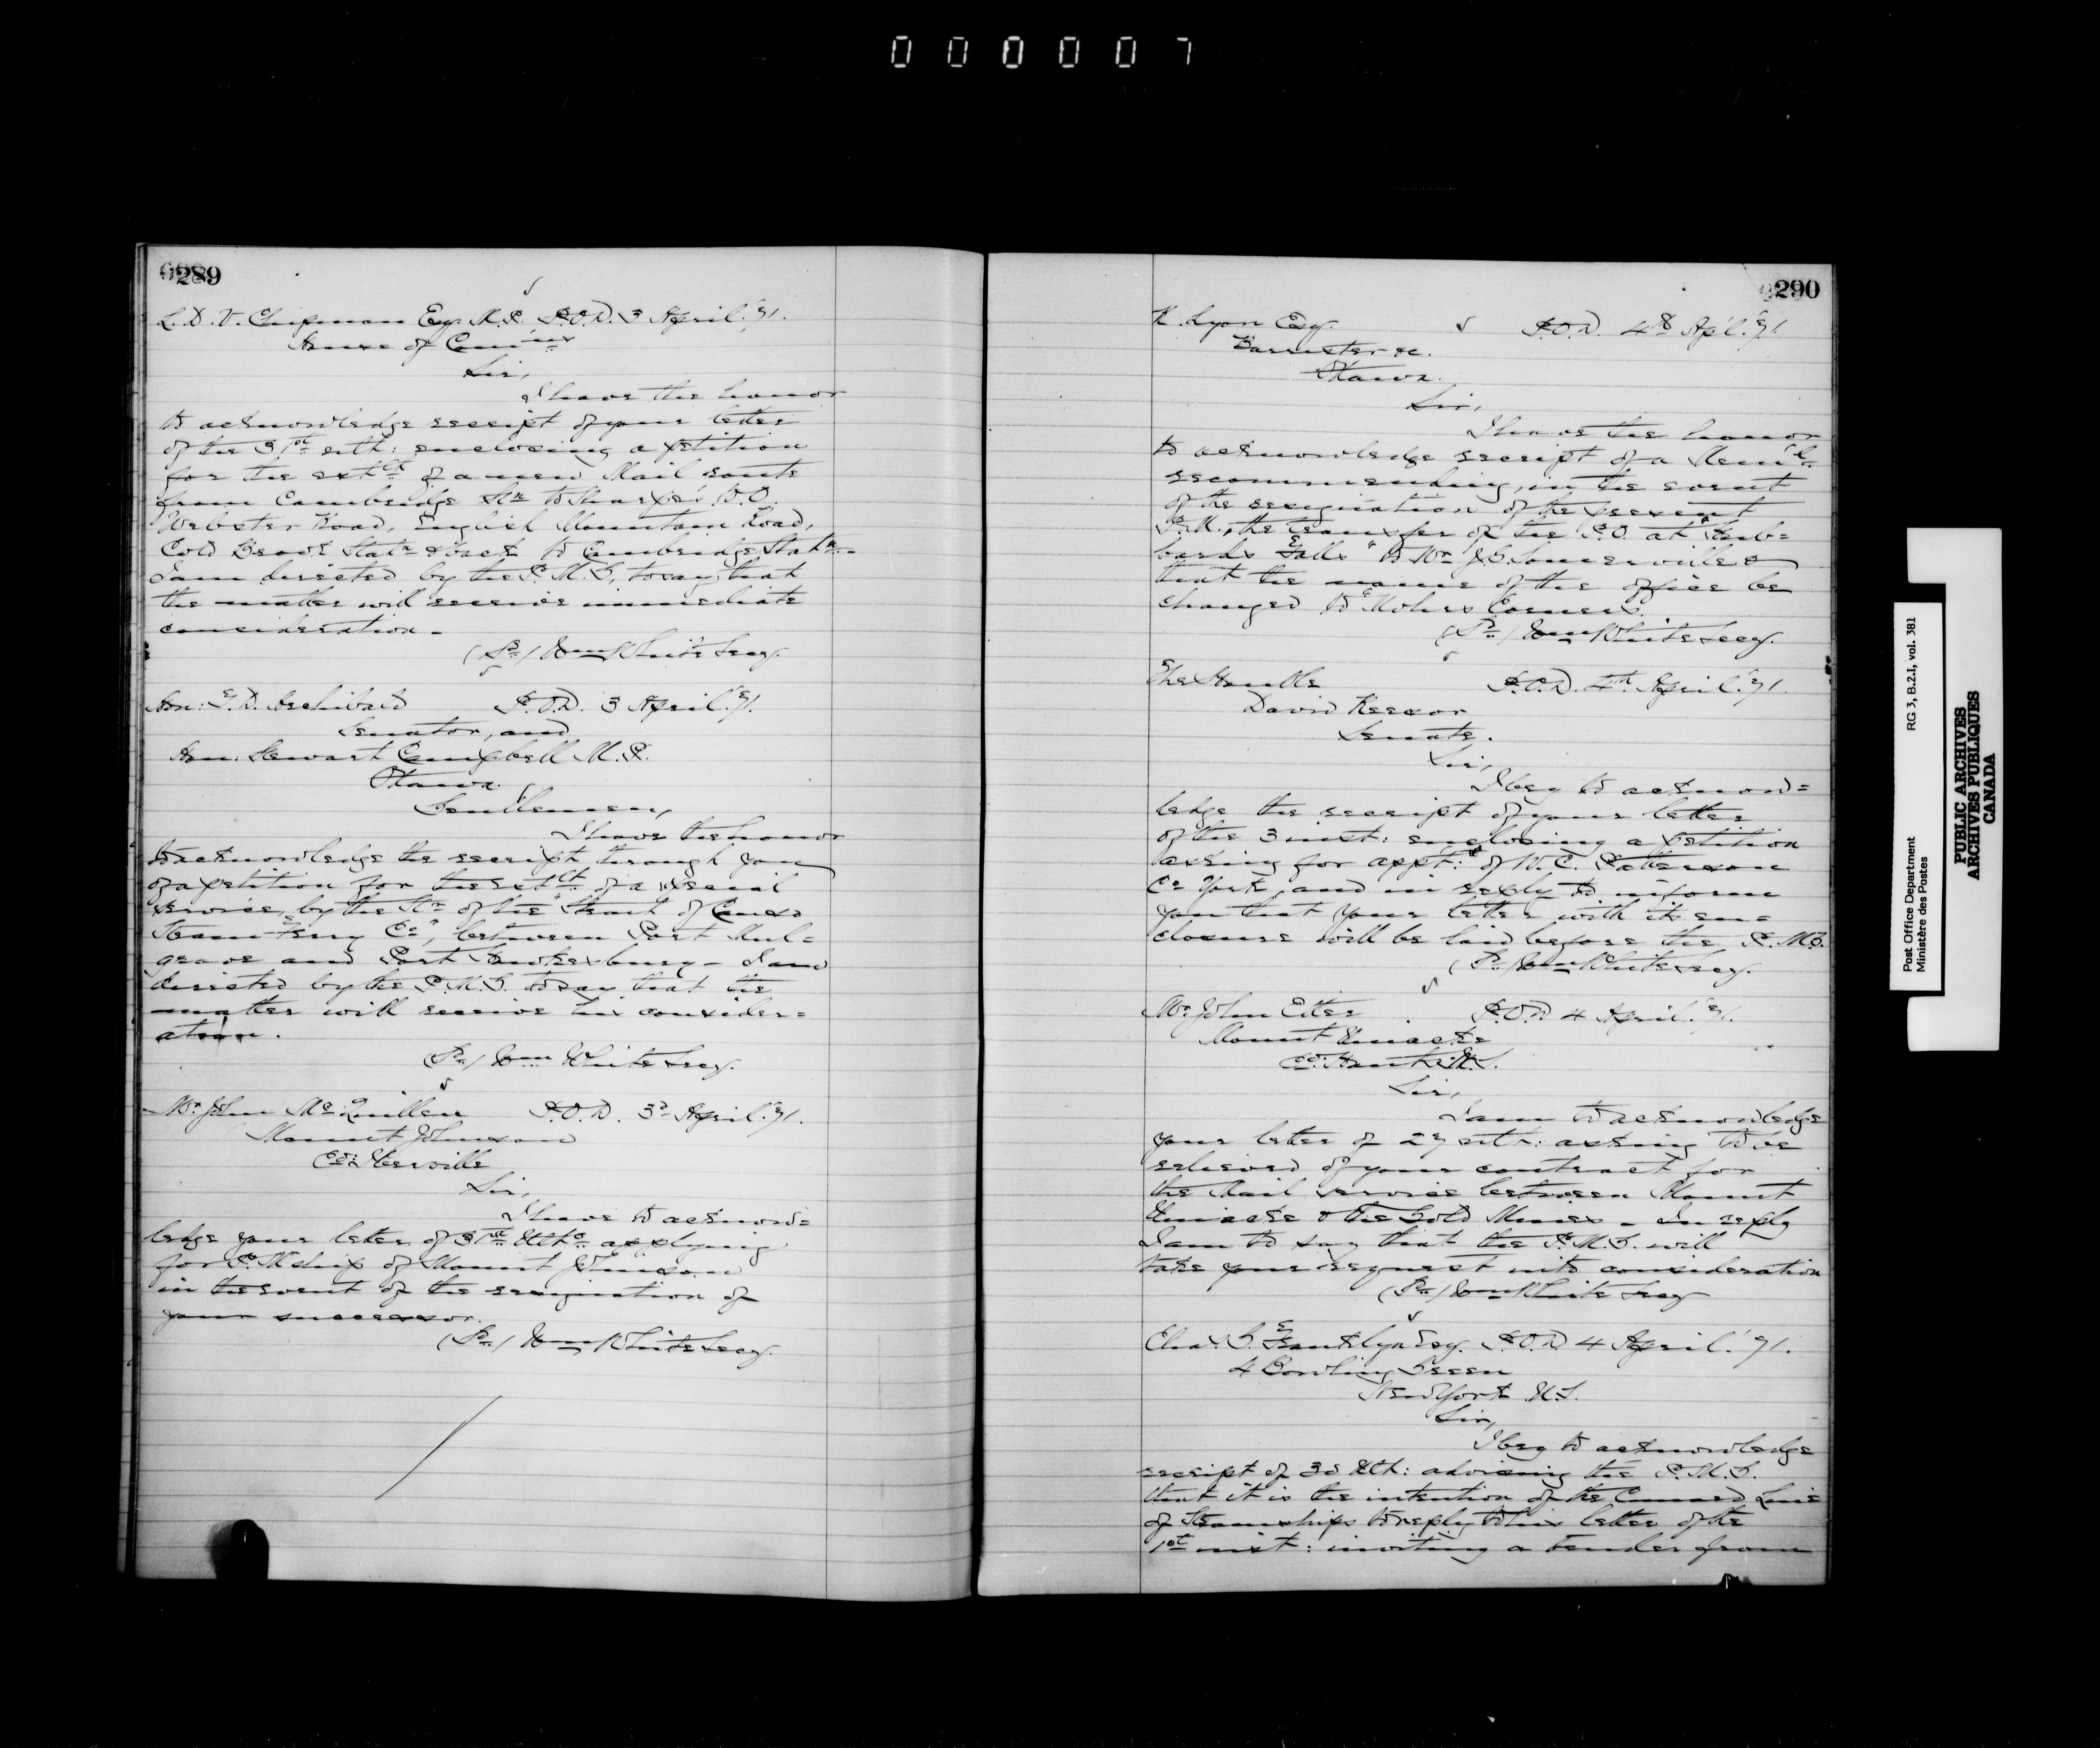 000007
289
L. D. V. Chipman Esq. M.P. P.O.D. 3 April '71.
House of Com:ns
Sir,
I have the honor
to acknowledge receipt of your letter
of the 31st ulth: enclosing a petition
for the of a new Mail route
from Cambridge Stn to W.O.
Webster Road, English Mountain Road,
Cold Brook Statn & back to Cambridge Statn.-
I am directed by the P.M.G, to say that
the matter will receive immediate
consideration -
(Sd) Wm White Secy.
Hon: T. D. Archibald P.O.D. 3 April '71.
Senator, and
Hon: Stewart Campbell M.P.
Ottawa.
Gentlemen,
I have the honor
to acknowledge the receipt through you
of a petition for the of a special
service, by the Str of the "Strait of Canso
Steam Ferry Co", between Port Mul=
grave and Port Hawkesbury - I am
directed by the P.M.G. to say that the
matter will receive his consider=
ation.
(Sd) Wm White Secy.
Mr John McQuillen P.O.D. 3d April '71.
Mount Johnson
Co: Iberville
Sir,
I have to acknow=
ledge your letter of 31st Ulto applying
for P.Mship of Mount Johnson
in the event of the resignation of
your successor.
(Sd) Wm White Secy.
290
R. Lyon Esq. P.O.D. 4th Apl. '71.
Barrister &c.
Ottawa.
Sir,
I have the honor
to acknowledge receipt of a Mem'l.
recommending, in the event
of the resignation of the present
P.M., the transfer of the P.O. at "Hub=
bards Falls" to Mr J.S. Somerville &
that the name of the office be
changed to "Mohrs Corners.
(Sd) Wm White Secy.
The Honble P.O.D. 4th April '71.
David Reesor
Senate.
Sir,
I beg to acknow=
ledge the receipt of your letter
of the 3 inst: enclosing a petition
asking for appt: of W.C. Patterson
Co York, and in reply to inform
you that your letter with its en=
closure will be laid before the P.M.G.
(Sd) Wm White Secy.
Mr John Etter P.O.D 4 April '71.
Mount Uniacke
Co: Hants N.S.
Sir,
I am to acknowledge
your letter of 27 ulth: asking to be
relieved of your contract for
the Mail service between Mount
Uniacke & the Gold Mines - In reply
I am to say that the P.M.G. will
take your request into consideration
(Sd) Wm White Secy
Chas. G. Francklyn Esq. P.O.D 4 April '71.
4 Bowling Green
New York U.S.
Sir,
I beg to acknowledge
receipt of 30 Ult: advising the P.M.G.
that it is the intention of the Cunard Line
of Steamships to reply to his letter of the
1st inst: inviting a tender from
Post Office Department RG 3, B.2.I, vol. 381
Ministère des Postes
PUBLIC ARCHIVES
ARCHIVES PUBLIQUES
CANADA